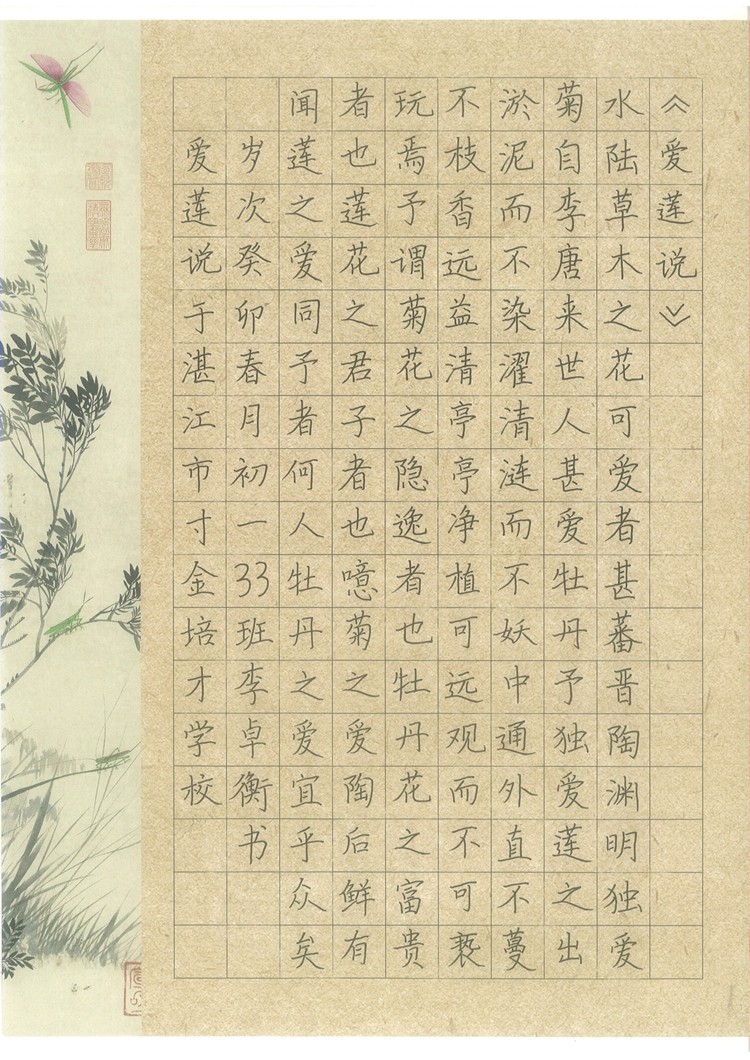 《爱莲说》
水陆草木之花可爱者甚蕃晋陶渊明独爱
菊自李唐来世人甚爱牡丹予独爱莲之出
淤泥而不染濯清涟而不妖中通外直不蔓
不枝香远益清亭亭净植可远观而不可亵
玩焉予谓菊花之隐逸者也牡丹花之富贵
者也莲花之君子者也噫菊之爱陶后鲜有
闻莲之爱同予者何人牡丹之爱宜乎众矣
岁次癸卯春月初一33班李卓衡书
爱莲说于湛江市寸金培才学校